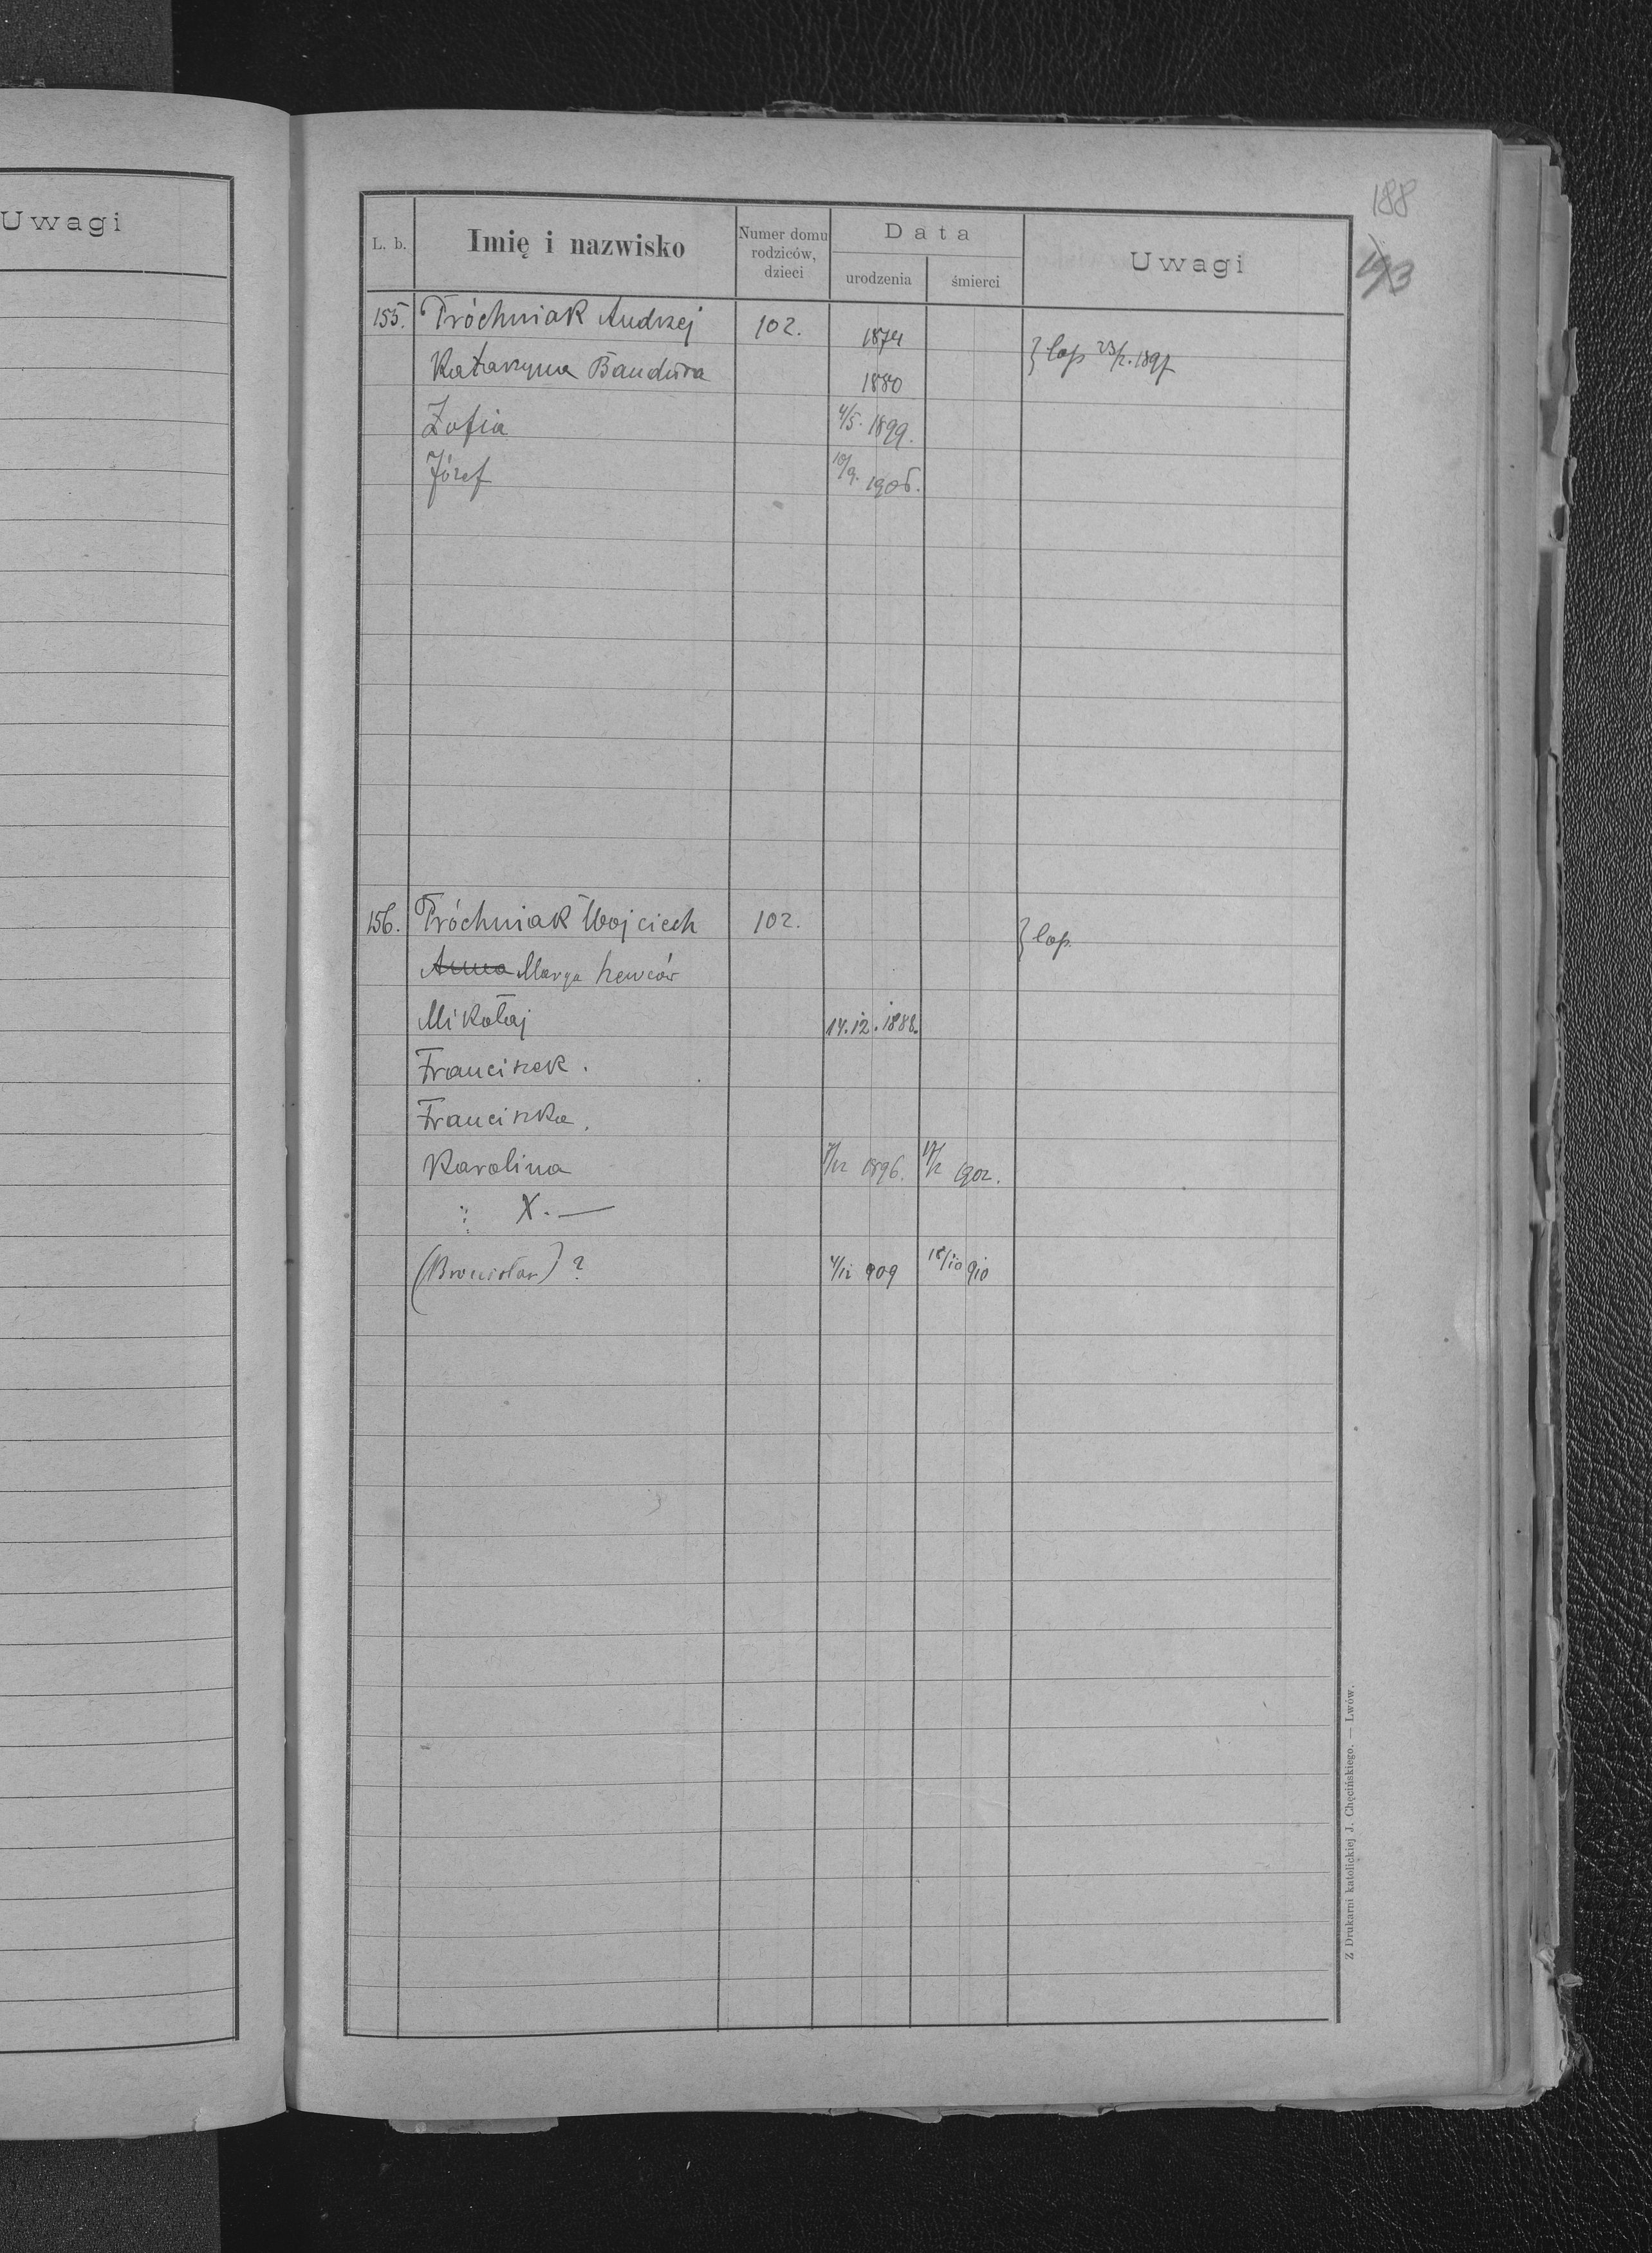 Uwagi
188
193
L. b. Imię i nazwisko Numer domu rodziców, dzieci Data urodzenia śmierci Uwagi
155. Próchniak Andrzej 102. 1874
Katarzyna Bandura 1880 } cop 23/2.1897
Zofia 4/5. 1899.
Józef 10/9. 1906.
156. Próchniak Wojciech 102. } cop.
Anna Marya Szewców
Mikołaj 14.12.1888.
Franciszek.
Franciszka.
Karolina /12 1896. 17/2 1902.
X. —
(Bronisław) ? 4/12 909 18/10 910
Z Drukarni katolickiej J. Chęcińskiego. — Lwów.